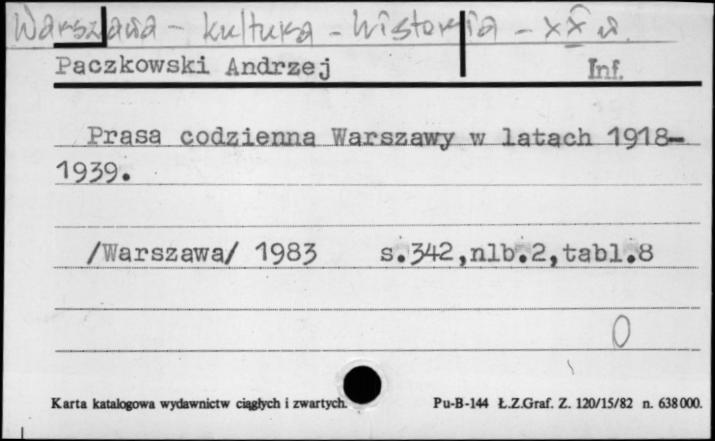 Warszawa - kultura - historia - XX w.
Paczkowski Andrzej Inf.
Prasa codzienna Warszawy w latach 1918-
1939.
/Warszawa/ 1983 s.342,nlb.2,tabl.8
0
Karta katalogowa wydawnictw ciągłych i zwartych. Pu-B-144 Ł.Z.Graf. Z. 120/15/82 n. 638000.